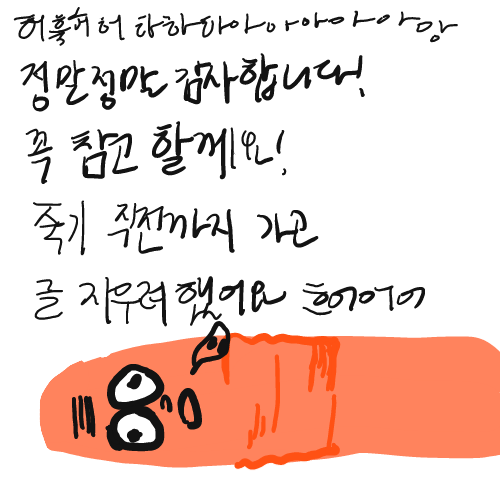 허흑허 허 타하타아아아아아아앙
정말정말 감사합니다!
꼭 참고 할께요!
죽기 직전까지 가곤
글 지우려 했어요 흐어어어